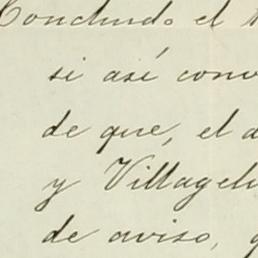 Concluido el
si así conv
de que, el a
y Villagel
de aviso,